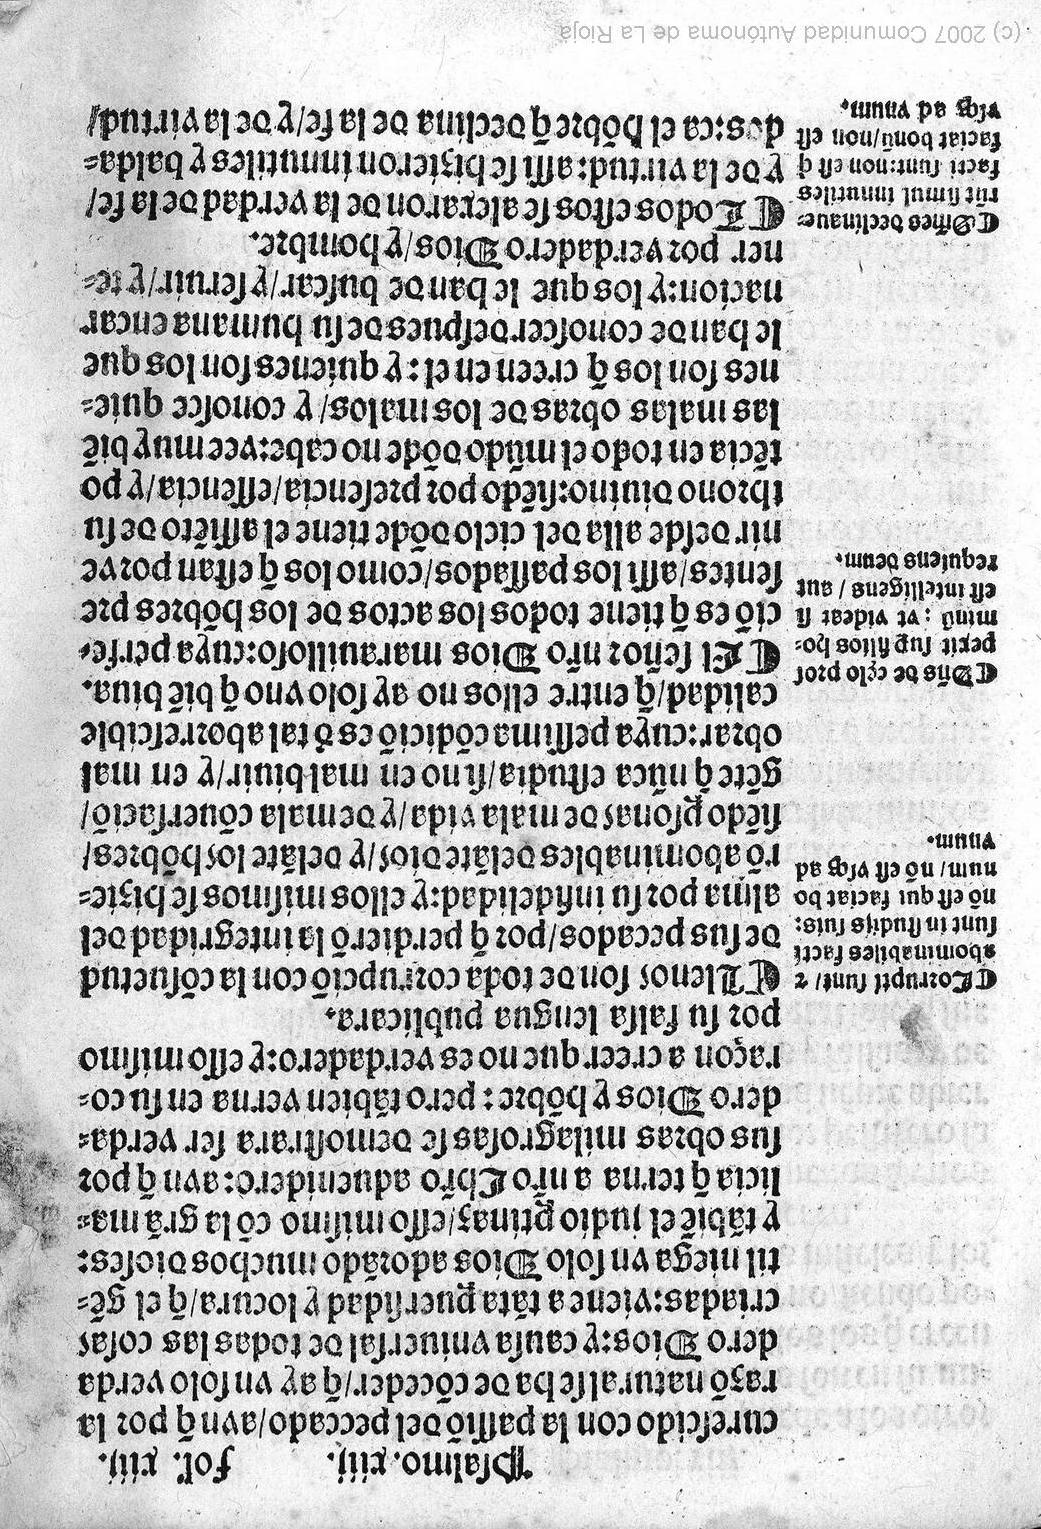 Psalmo. xiij. fol. xiij.
curescido con la passiõ del peccado/avn q̃ por la
razõ natural se ha de cõceder/q̃ ay vn solo verda
dero Dios:y causa vniuersal de todas las cosas
criadas:viene a tãta puersidad y locura/q̃ el gẽ-
til niega vn solo Dios adorãdo muchos dioses:
y tãbiẽ el judio ptinaz/esso mismo cõ la grã ma-
licia q̃ terna a nr̃o Chr̃o aduenidero:avn q̃ por
sus obras milagrosas se demostrara ser verda-
dero Dios y hõbre: pero tãbien verna en su co-
raçon a creer que no es verdadero:y esso mismo
por su falsa lengua publicara.
¶ Llenos son de toda corrupciõ con la cõsuetud
de sus peccados/por q̃ perdierõ la integridad del
alma por su infidelidad:y ellos mismos se hizie-
rõ abominables delãte dios/y delãte los hõbres/
siẽdo psonas de mala vida/y de mala cõuersaciõ/
gẽte q̃ nũca estudia/sino en mal biuir/y en mal
obrar:cuya pessima cõdiciõ es d̃ tal aborrescible
calidad/q̃ entre ellos no ay solo vno q̃ biẽ biua.
¶ El señor nr̃o Dios marauilloso:cuya perfe-
ciõ es q̃ tiene todos los actos de los hõbres pre
sentes/assi los passados/como los q̃ estan por ve
nir desde alla del cielo dõde tiene el assiẽto de su
throno diuino:siẽdo por presencia/essencia/y po
tẽcia en todo el mũdo dõde no cabe:vee muy biẽ
las malas obras de los malos/y conosce quie-
nes son los q̃ creen en el: y quienes son los que
le han de conoscer despues de su humana encar
nacion:y los que le han de buscar/y seruir/y te-
ner por verdadero Dios/y hombre.
¶ Todos estos se alexaron de la verdad de la fe/
y de la virtud:assi se hizieron inmutiles y balda-
dos:ca el hõbre q̃ declina de la fe/y de la virtud/
¶ Corrupti sunt/ z
abominabiles facti
sunt in studijs suis:
nõ est qui faciat bo
num/ nõ est vsq̃ ad
vnum.
¶ Dñs de cẹlo pros
pexit sup filios ho-
minũ : vt videat si
est intelligens / aut
requirens deum.
¶ Oẽs declinaue-
rũt simul inutiles
facti sunt:non est q
faciat bonũ/non est
vsq̃ ad vnum.
(c) 2007 Comunidad Autónoma de La Rioja